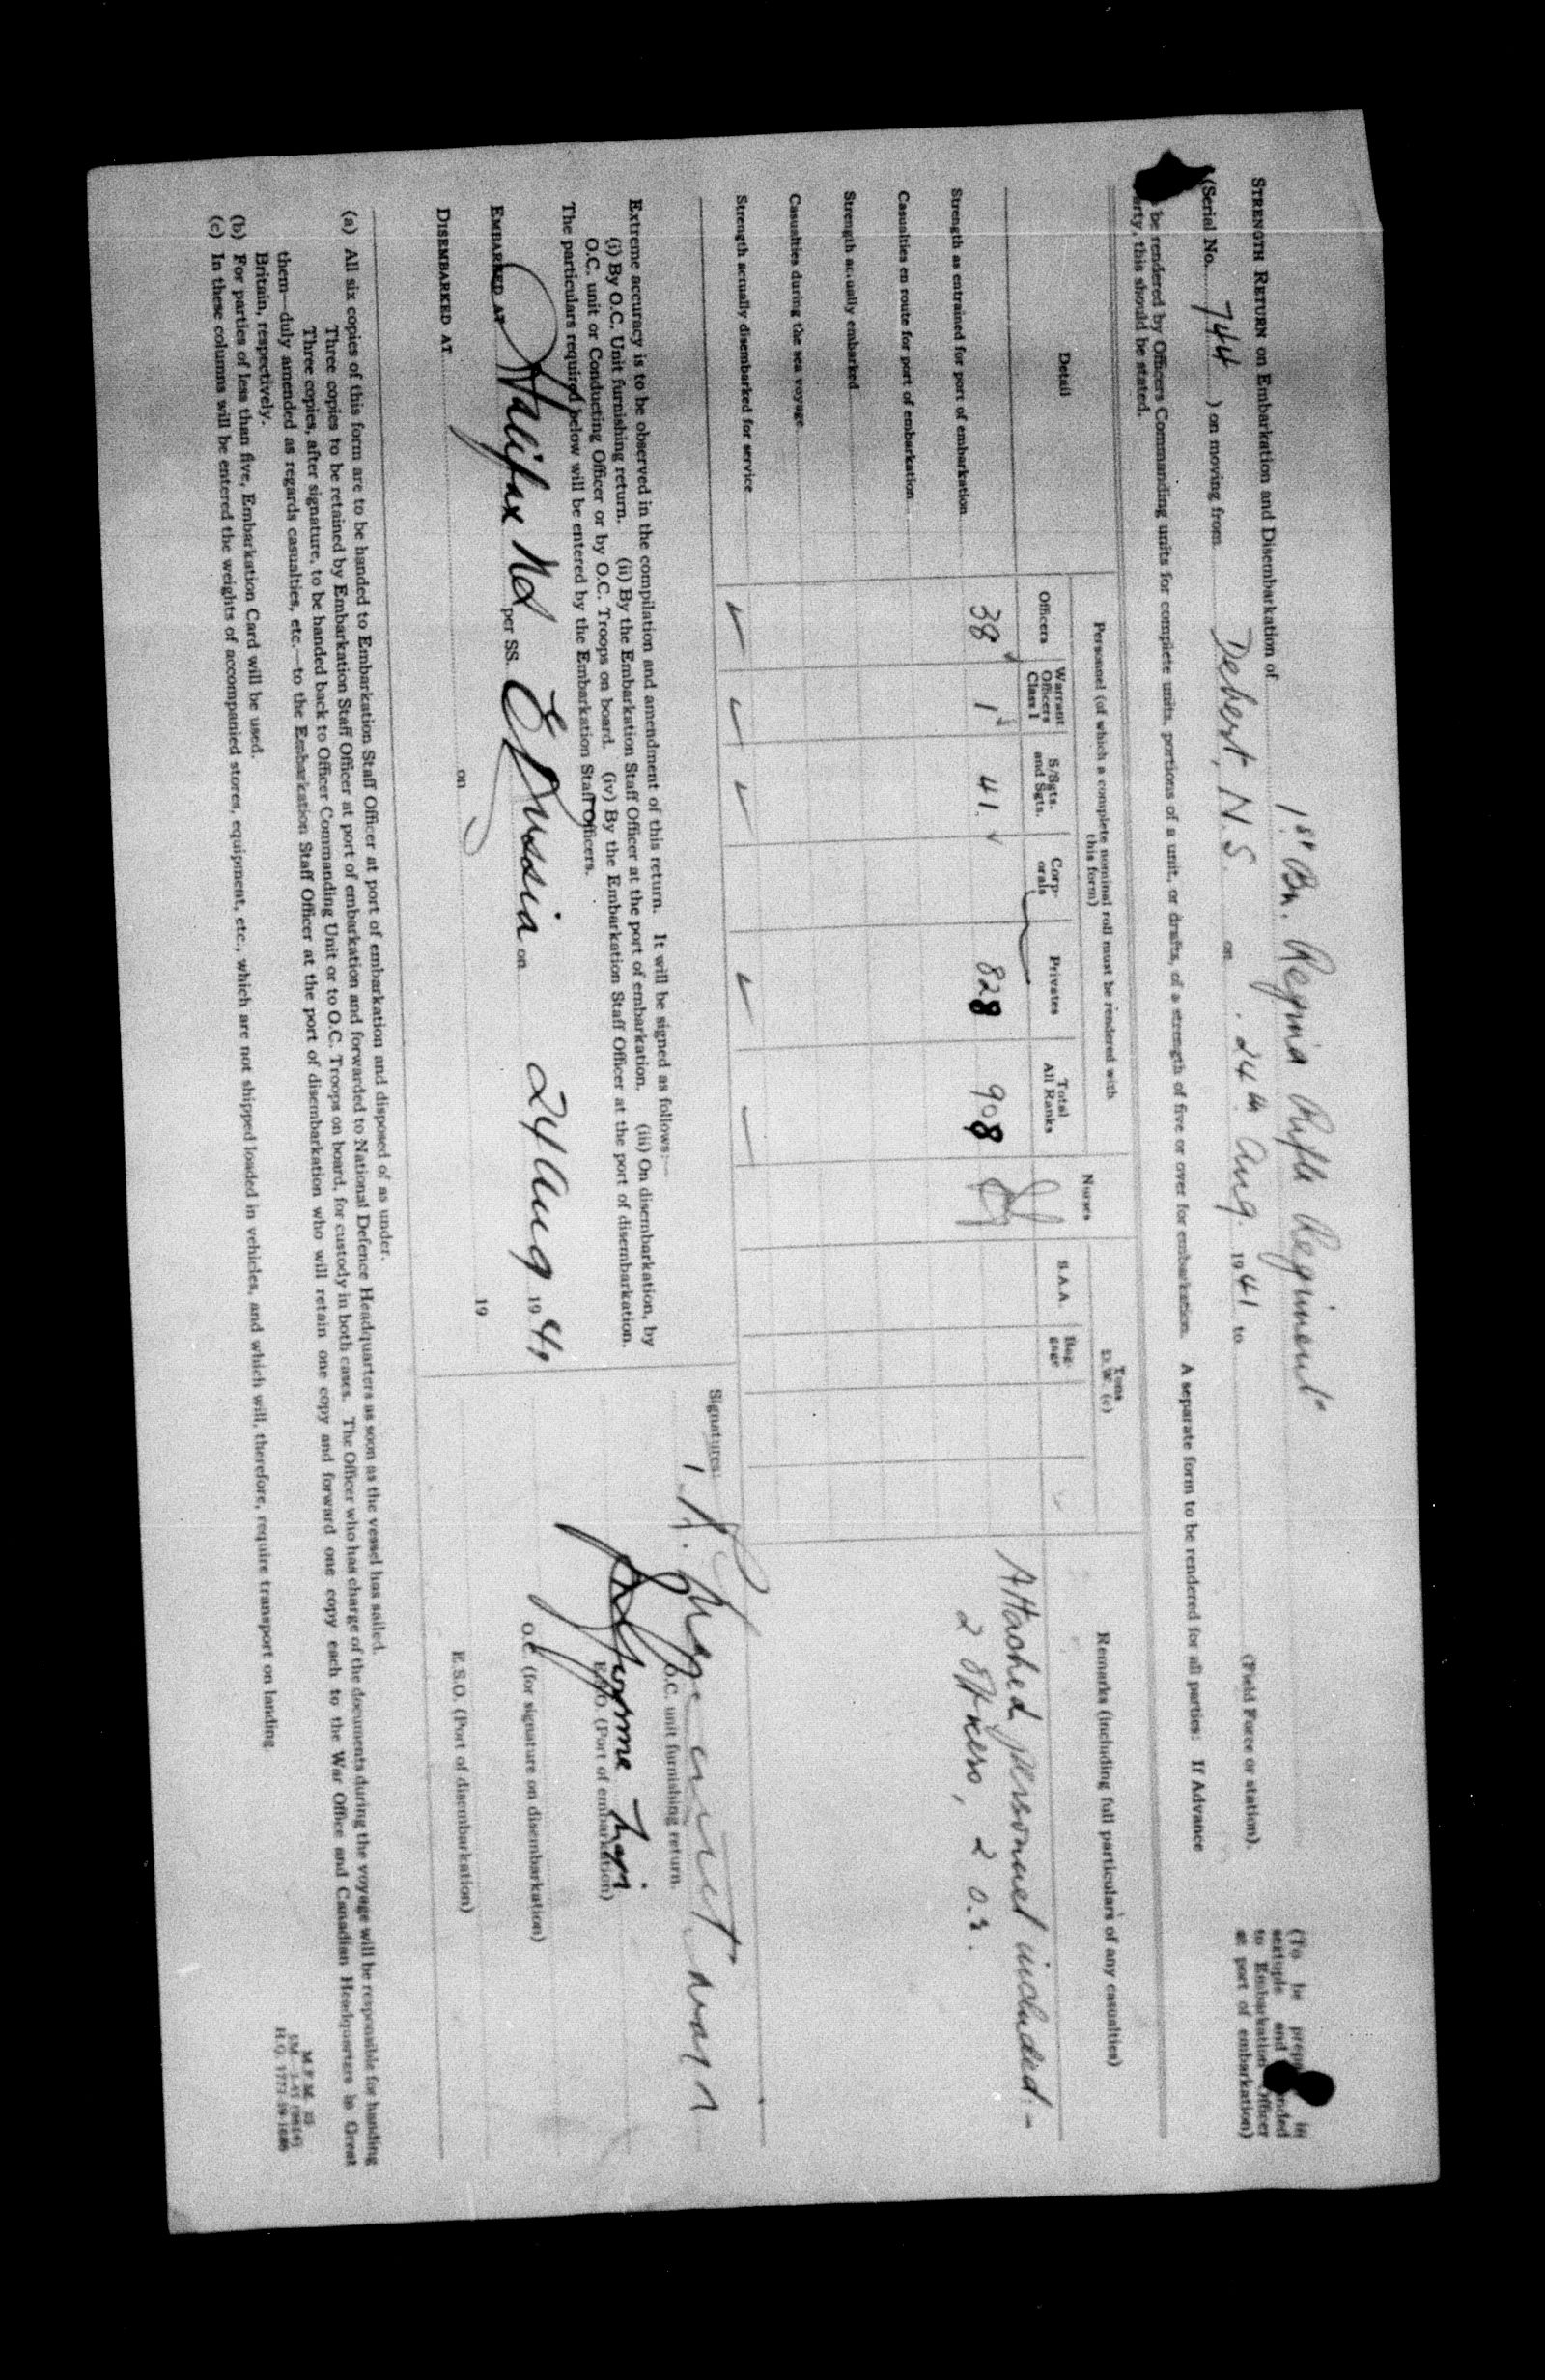 STRENGTH RETURN on Embarkation and Disembarkation of 1st Bn. Regina Rifle Regiment
(To be prep in
sextuple and nded
to Embarkation Officer
at port of embarkation)
(Serial No. 744 ) on moving from Debert, N.S. on 24th Aug. 1941 to (Field Force or station).
be rendered by Officers Commanding units for complete units, portions of a unit, or drafts, of a strength of five or over for embarkation. A separate form to be rendered for all parties: If Advance
arty, this should be stated.
Detail
Personnel (of which a complete nominal roll must be rendered with
this form)
Nurses
Tons
D.W. (c)
Remarks (including full particulars of any casualties)
Officers
Warrant
Officers
Class I
S/Sgts.
and Sgts.
Corp-
orals
Privates
Total
All Ranks
S.A.A.
Bag-
gage
Strength as entrained for port of embarkation 38 1 41 828 908
Attached personnel included:-
2 Officers, 2 O.R.
Casualties en route for port of embarkation
Strength actually embarked
Casualties during the sea voyage
Strength actually disembarked for service
Extreme accuracy is to be observed in the compilation and amendment of this return. It will be signed as follows:—
(i) By O.C. Unit furnishing return. (ii) By the Embarkation Staff Officer at the port of embarkation. (iii) On disembarkation, by
O.C. unit or Conducting Officer or by O.C. Troops on board. (iv) By the Embarkation Staff Officer at the port of disembarkation.
The particulars required below will be entered by the Embarkation Staff Officers.
EMBARKED AT Halifax NS per SS. E/Russia on 24 Aug 1941
DISEMBARKED AT on 19
Signatures:
O.C. unit furnishing return.
E.S.O. (Port of embarkation)
O.C. (for signature on disembarkation)
E.S.O. (Port of disembarkation)
(a) All six copies of this form are to be handed to Embarkation Staff Officer at port of embarkation and disposed of as under.
Three copies to be retained by Embarkation Staff Officer at port of embarkation and forwarded to National Defence Headquarters as soon as the vessel has sailed.
Three copies, after signature, to be handed back to Officer Commanding Unit or to O.C. Troops on board, for custody in both cases. The Officer who has charge of the documents during the voyage will be responsible for handing
them—duly amended as regards casualties, etc.—to the Embarkation Staff Officer at the port of disembarkation who will retain one copy and forward one copy each to the War Office and Canadian Headquarters in Great
Britain, respectively.
(b) For parties of less than five, Embarkation Card will be used.
(c) In these columns will be entered the weights of accompanied stores, equipment, etc., which are not shipped loaded in vehicles, and which will, therefore, require transport on landing.